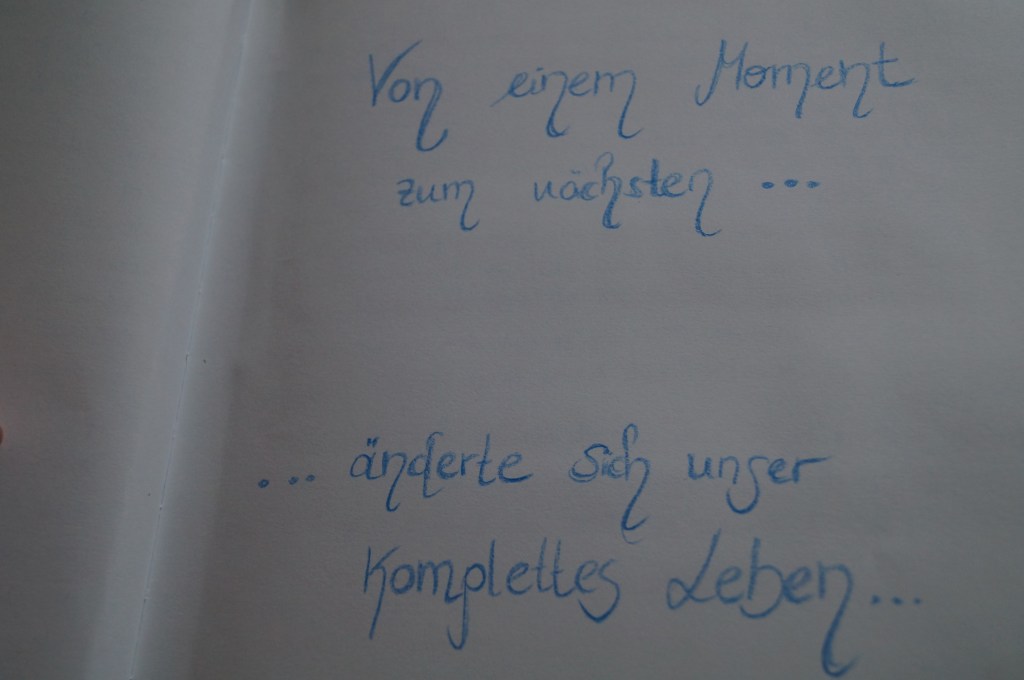 Von einem Moment
zum nächsten ...
... änderte sich unser
komplettes Leben ...